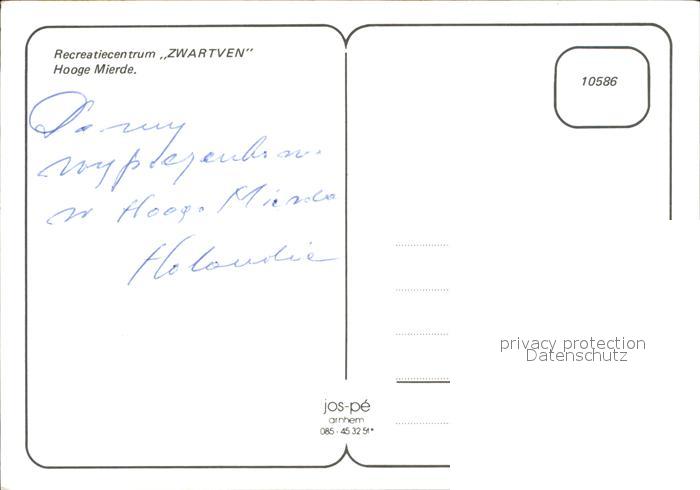 Recreatiecentrum „ZWARTVEN”
Hooge Mierde.
10586
w Hooge Mierde
Holandia
privacy protection
Datenschutz
jos-pé
arnhem
085 - 45 32 51*